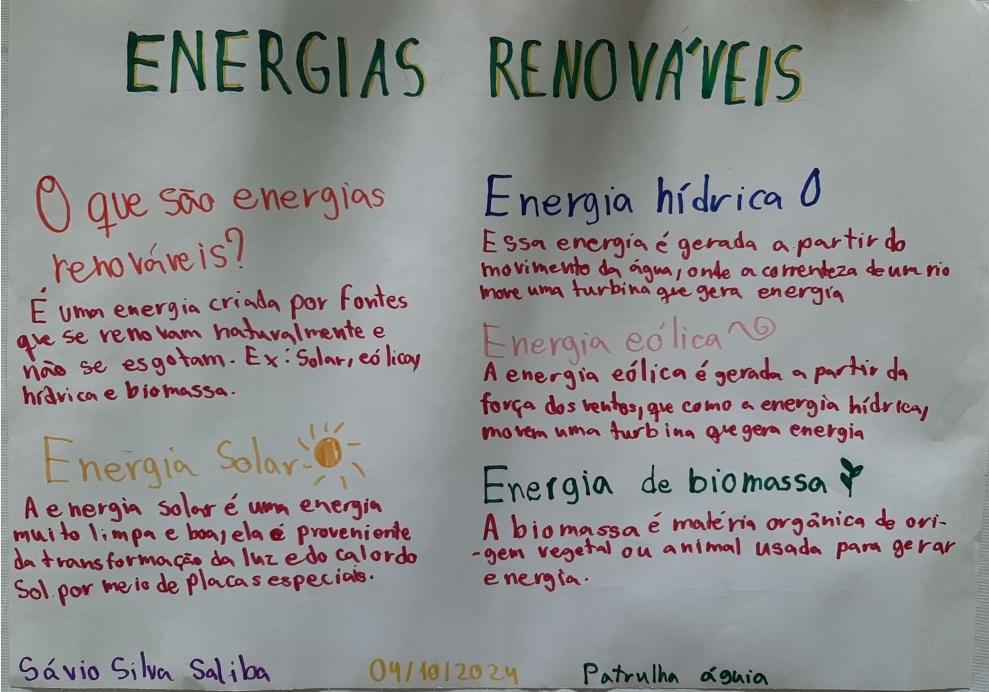 ENERGIAS RENOVÁVEIS
O que são energias
renováveis?
É uma energia criada por fontes
que se renovam naturalmente e
não se esgotam. Ex: Solar, eólica,
hídrica e biomassa.
Energia Solar
A energia solar é uma energia
muito limpa e boa, ela é proveniente
da transformação da luz e do calor do
Sol por meio de placas especiais.
Energia hídrica
Essa energia é gerada a partir do
movimento da água, onde a correnteza de um rio
move uma turbina que gera energia
Energia eólica
A energia eólica é gerada a partir da
força dos ventos, que como a energia hídrica,
movem uma turbina que gera energia
Energia de biomassa
A biomassa é matéria orgânica de ori-
-gem vegetal ou animal usada para gerar
energia.
Sávio Silva Saliba
04/10/2024
Patrulha águia